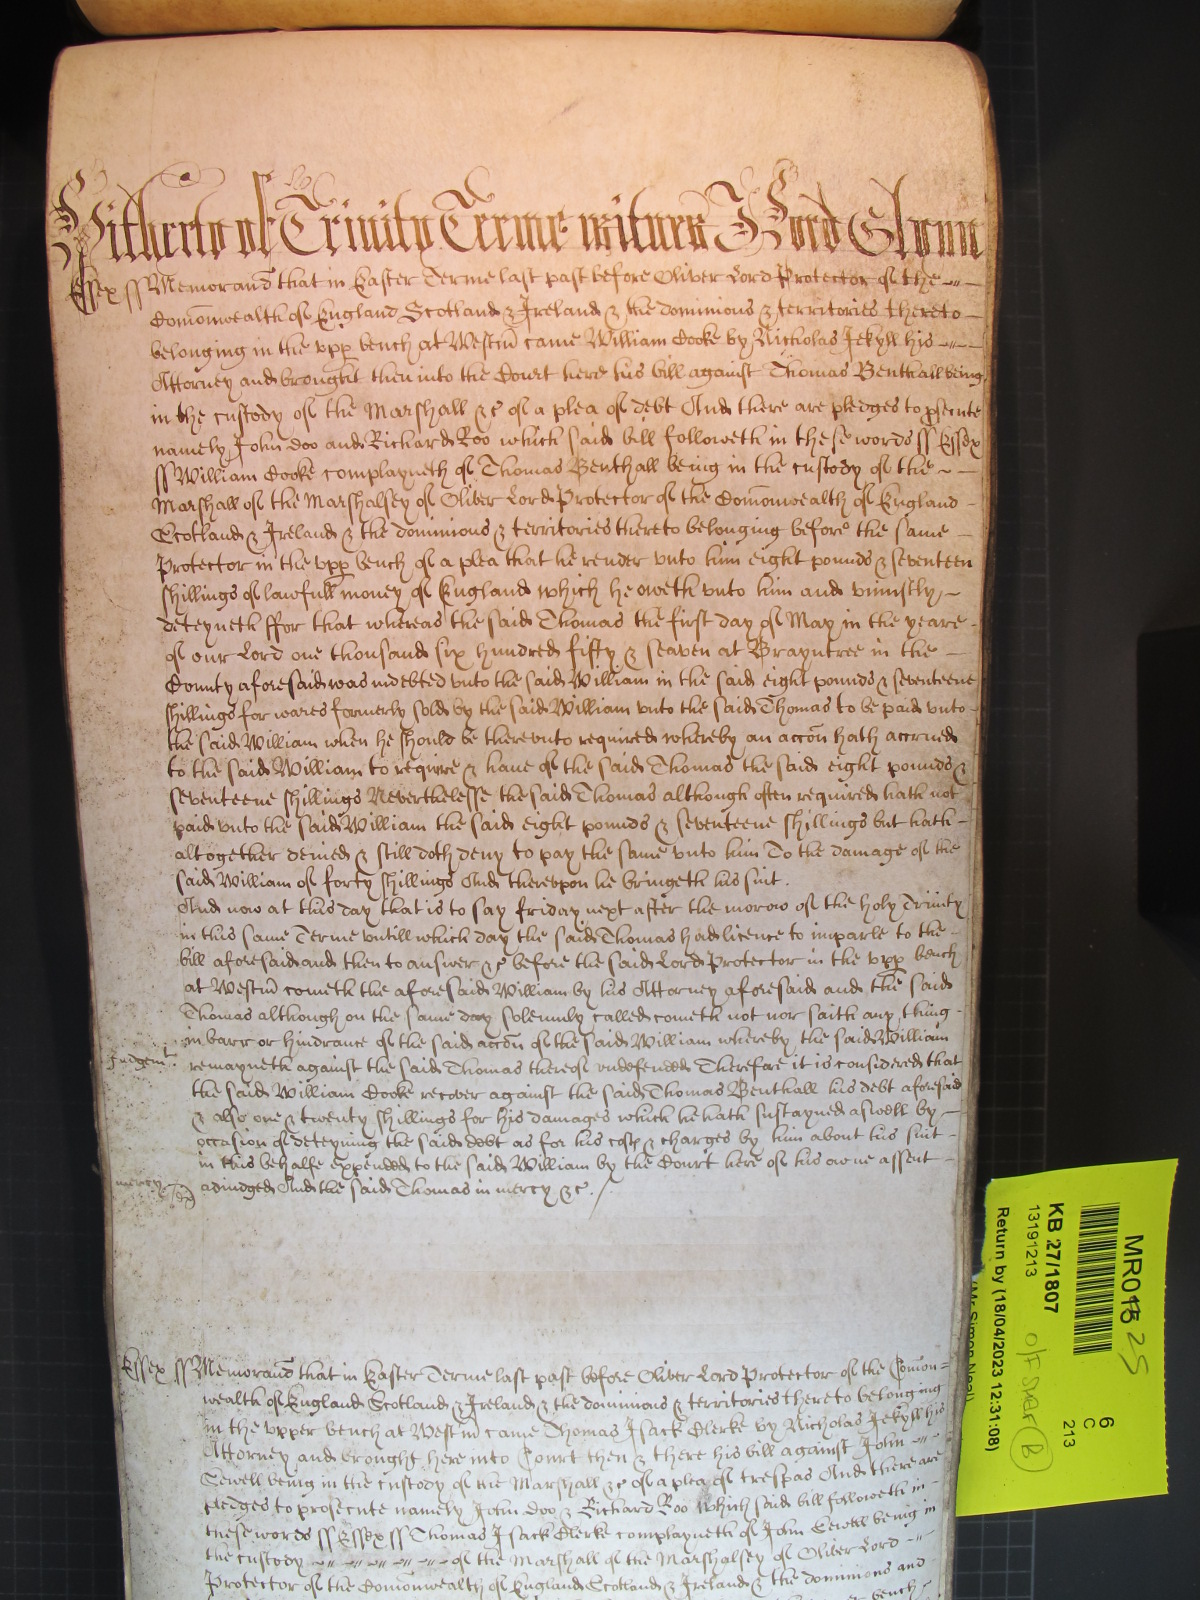 Hitherto of Trinity Terme witnes J Lord Glynn
Essex ss Memorand that in Easter Terme last past before Oliver Lord Protector of the
Comonwealth of England Scotland & Ireland & the dominions & territories thereto
belonging in the vpp bench at Westm came William Cooke by Nicholas Jekyll his
Attorney and brought then into the Court here his bill against Thomas Benthall being
in the custody of the Marshall &c of a plea of debt And there are pledges to psecute
namely John Doo and Richard Roo which said bill followeth in these words ss Essex
ss William Cooke complayneth of Thomas Benthall being in the custody of the
Marshall of the Marshalsey of Oliver Lord Protector of the Comonwealth of England
Scotland & Ireland & the dominions & territories thereto belonging before the same
Protector in the vpp bench of a plea that he render vnto him eight pounds & seventeen
shillings of lawfull money of England which he oweth vnto him and viniustly
deteyneth ffor that whereas the said Thomas the first day of May in the yeare
of our Lord one thousand six hundred fifty & seaven at Brayntree in the
County aforesaid was indebted vnto the said William in the said eight pounds & seventeene
shillings for wares formerly sold by the said William vnto the said Thomas to be paid vnto
the said William when he should be therevnto required whereby an accon hath accrued
to the said William to require & haue of the said Thomas the said eight pounds &
seventeene shillings Neverthelesse the said Thomas although often required hath not
paid vnto the said William the said eight pounds & seventeene shillings but hath
altogether denied & still doth deny to pay the same vnto him To the damage of the
said William of forty shillings And therevpon he bringeth his suit.
And now at this day that is to say friday next after the morow of the holy Trinity
in this same Terme vntill which day the said Thomas had licence to imparle to the
bill aforesaid and then to answer &c before the said Lord Protector in the vpp bench
at Westm cometh the aforesaid William by his Attorney aforesaid and the said
Thomas although on the same day solemnly called cometh not nor saith any thing
in barr or hindrance of the said accon of the said William whereby the said William
Judgemt remayneth against the said Thomas thereof vndefended Therefore it is considered that
the said William Cooke recover against the said Thomas Benthall his debt aforesaid
& also one & twenty shillings for his damages which he hath sustayned aswell by
occasion of deteyning the said debt as for his costs & charges by him about his suit
in this behalfe expended to the said William by the Court here of his owne assent
mercy adiudged And the said Thomas in mercy &c.
Essex ss Memorand that in Easter Terme last past before Oliver Lord Protector of the Comon=
wealth of England Scotland & Ireland & the dominions & territories thereto belonging
in the vpper bench at Westm came Thomas Isack Clerke by Nicholas Jekyll his
Attorney and brought here into Court then & there his bill against John
Sewell being in the custody of the Marshall &c of a plea of trespas And there are
pledges to prosecute namely John Doo & Richard Roo which said bill followeth in
these words ss Essex ss Thomas Isack Clerke complayneth of John Sewell being in
the custody of the Marshall of the Marshalsey of Oliver Lord
Protector of the Comonwealth of England Scotland & Ireland & the dominions and
bench
MR01 25
6
C
213
KB 27/1807
13191213
Return by (18/04/2023 12:31:08)
(Mr Simon Neal)
B